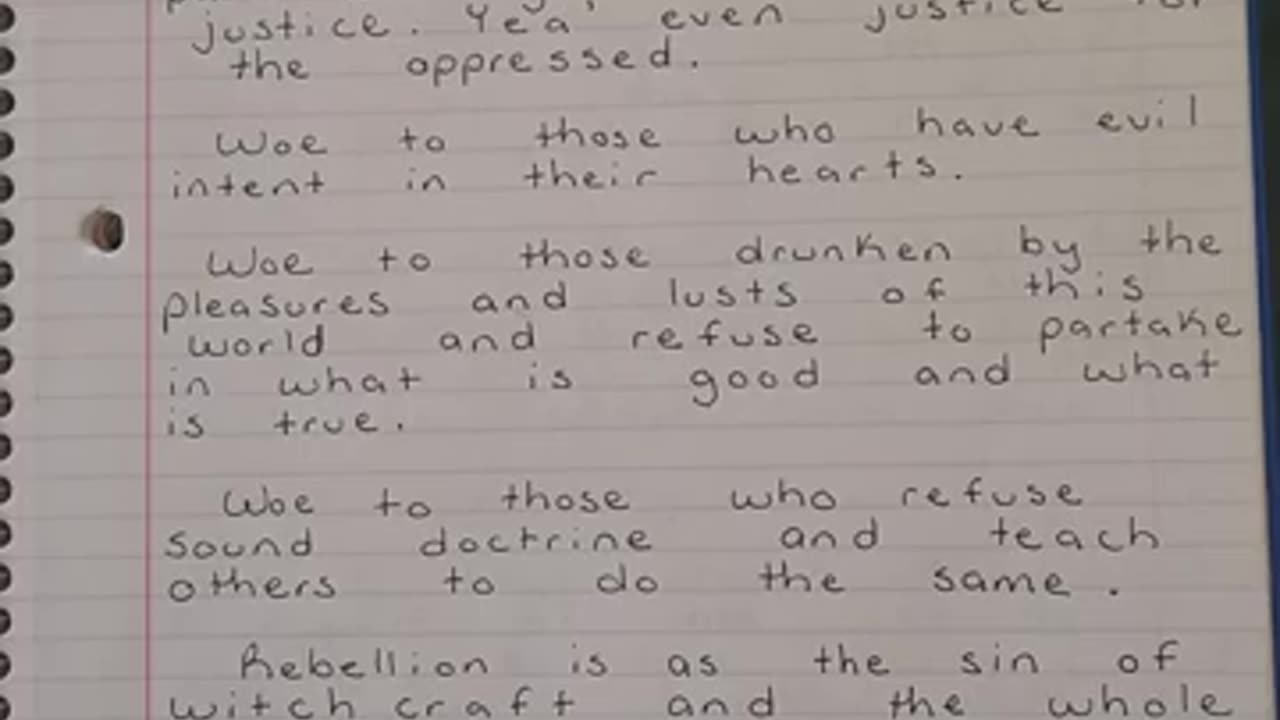 justice. Yea' even justice for
the oppressed.
Woe to those who have evil
intent in their hearts.
Woe to those drunken by the
pleasures and lusts of this
world and refuse to partake
in what is good and what
is true.
Woe to those who refuse
sound doctrine and teach
others to do the same.
Rebellion is as the sin of
witch craft and the whole